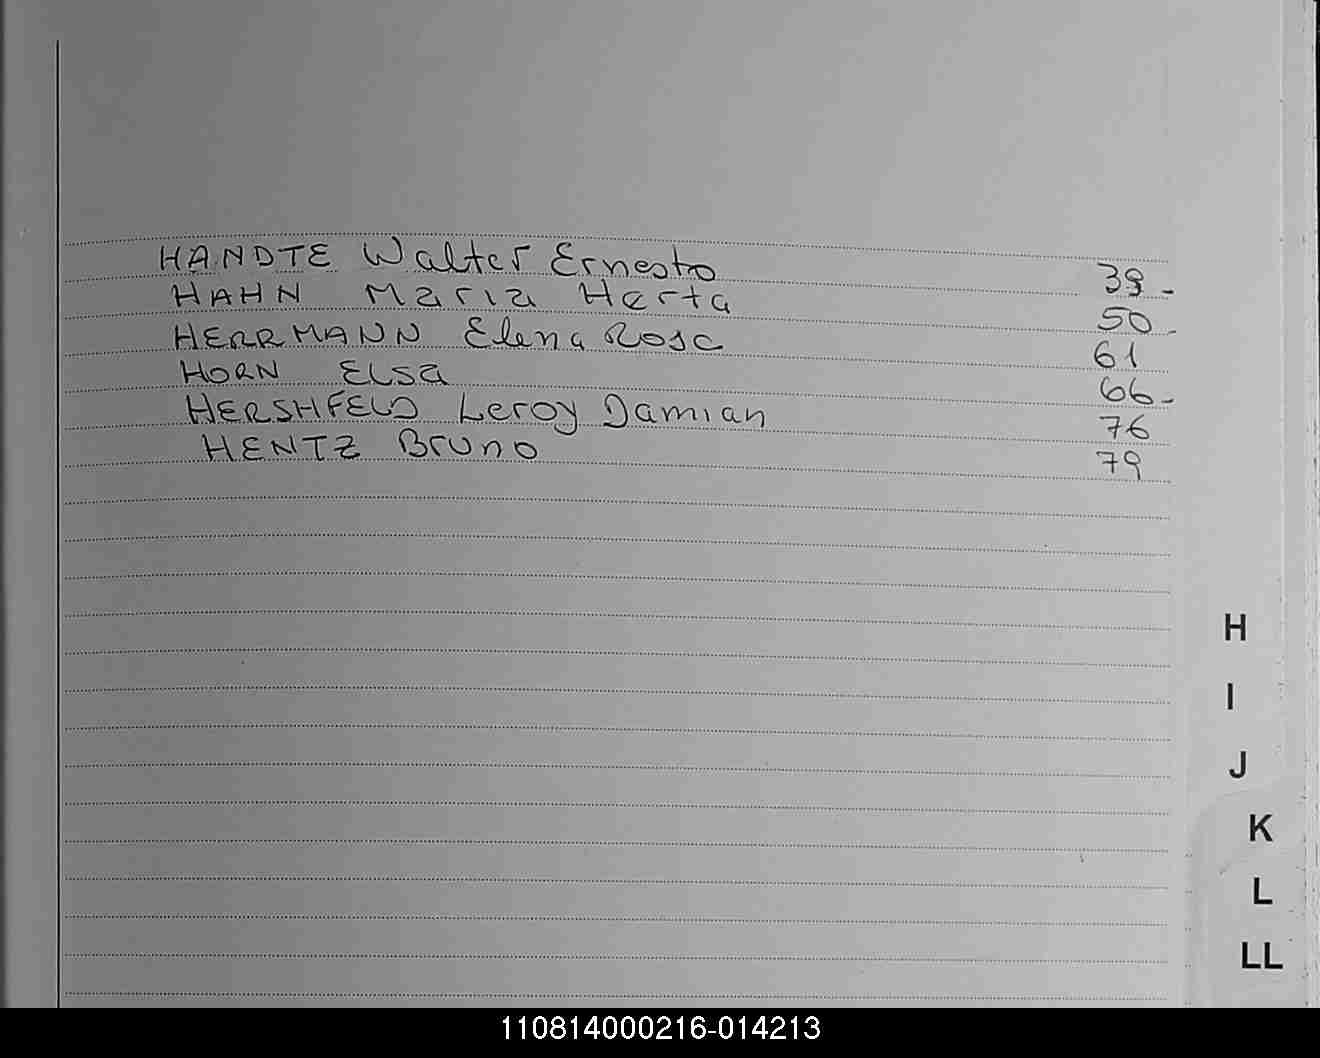 HANDTE Walter Ernesto 39 -
HAHN Maria Herta 50 -
HERRMANN Elena Rosa 61
HORN Elsa 66 -
HERSHFELD Leroy Damian 76
HENTZ Bruno 79
H
I
J
K
L
LL
110814000216-014213